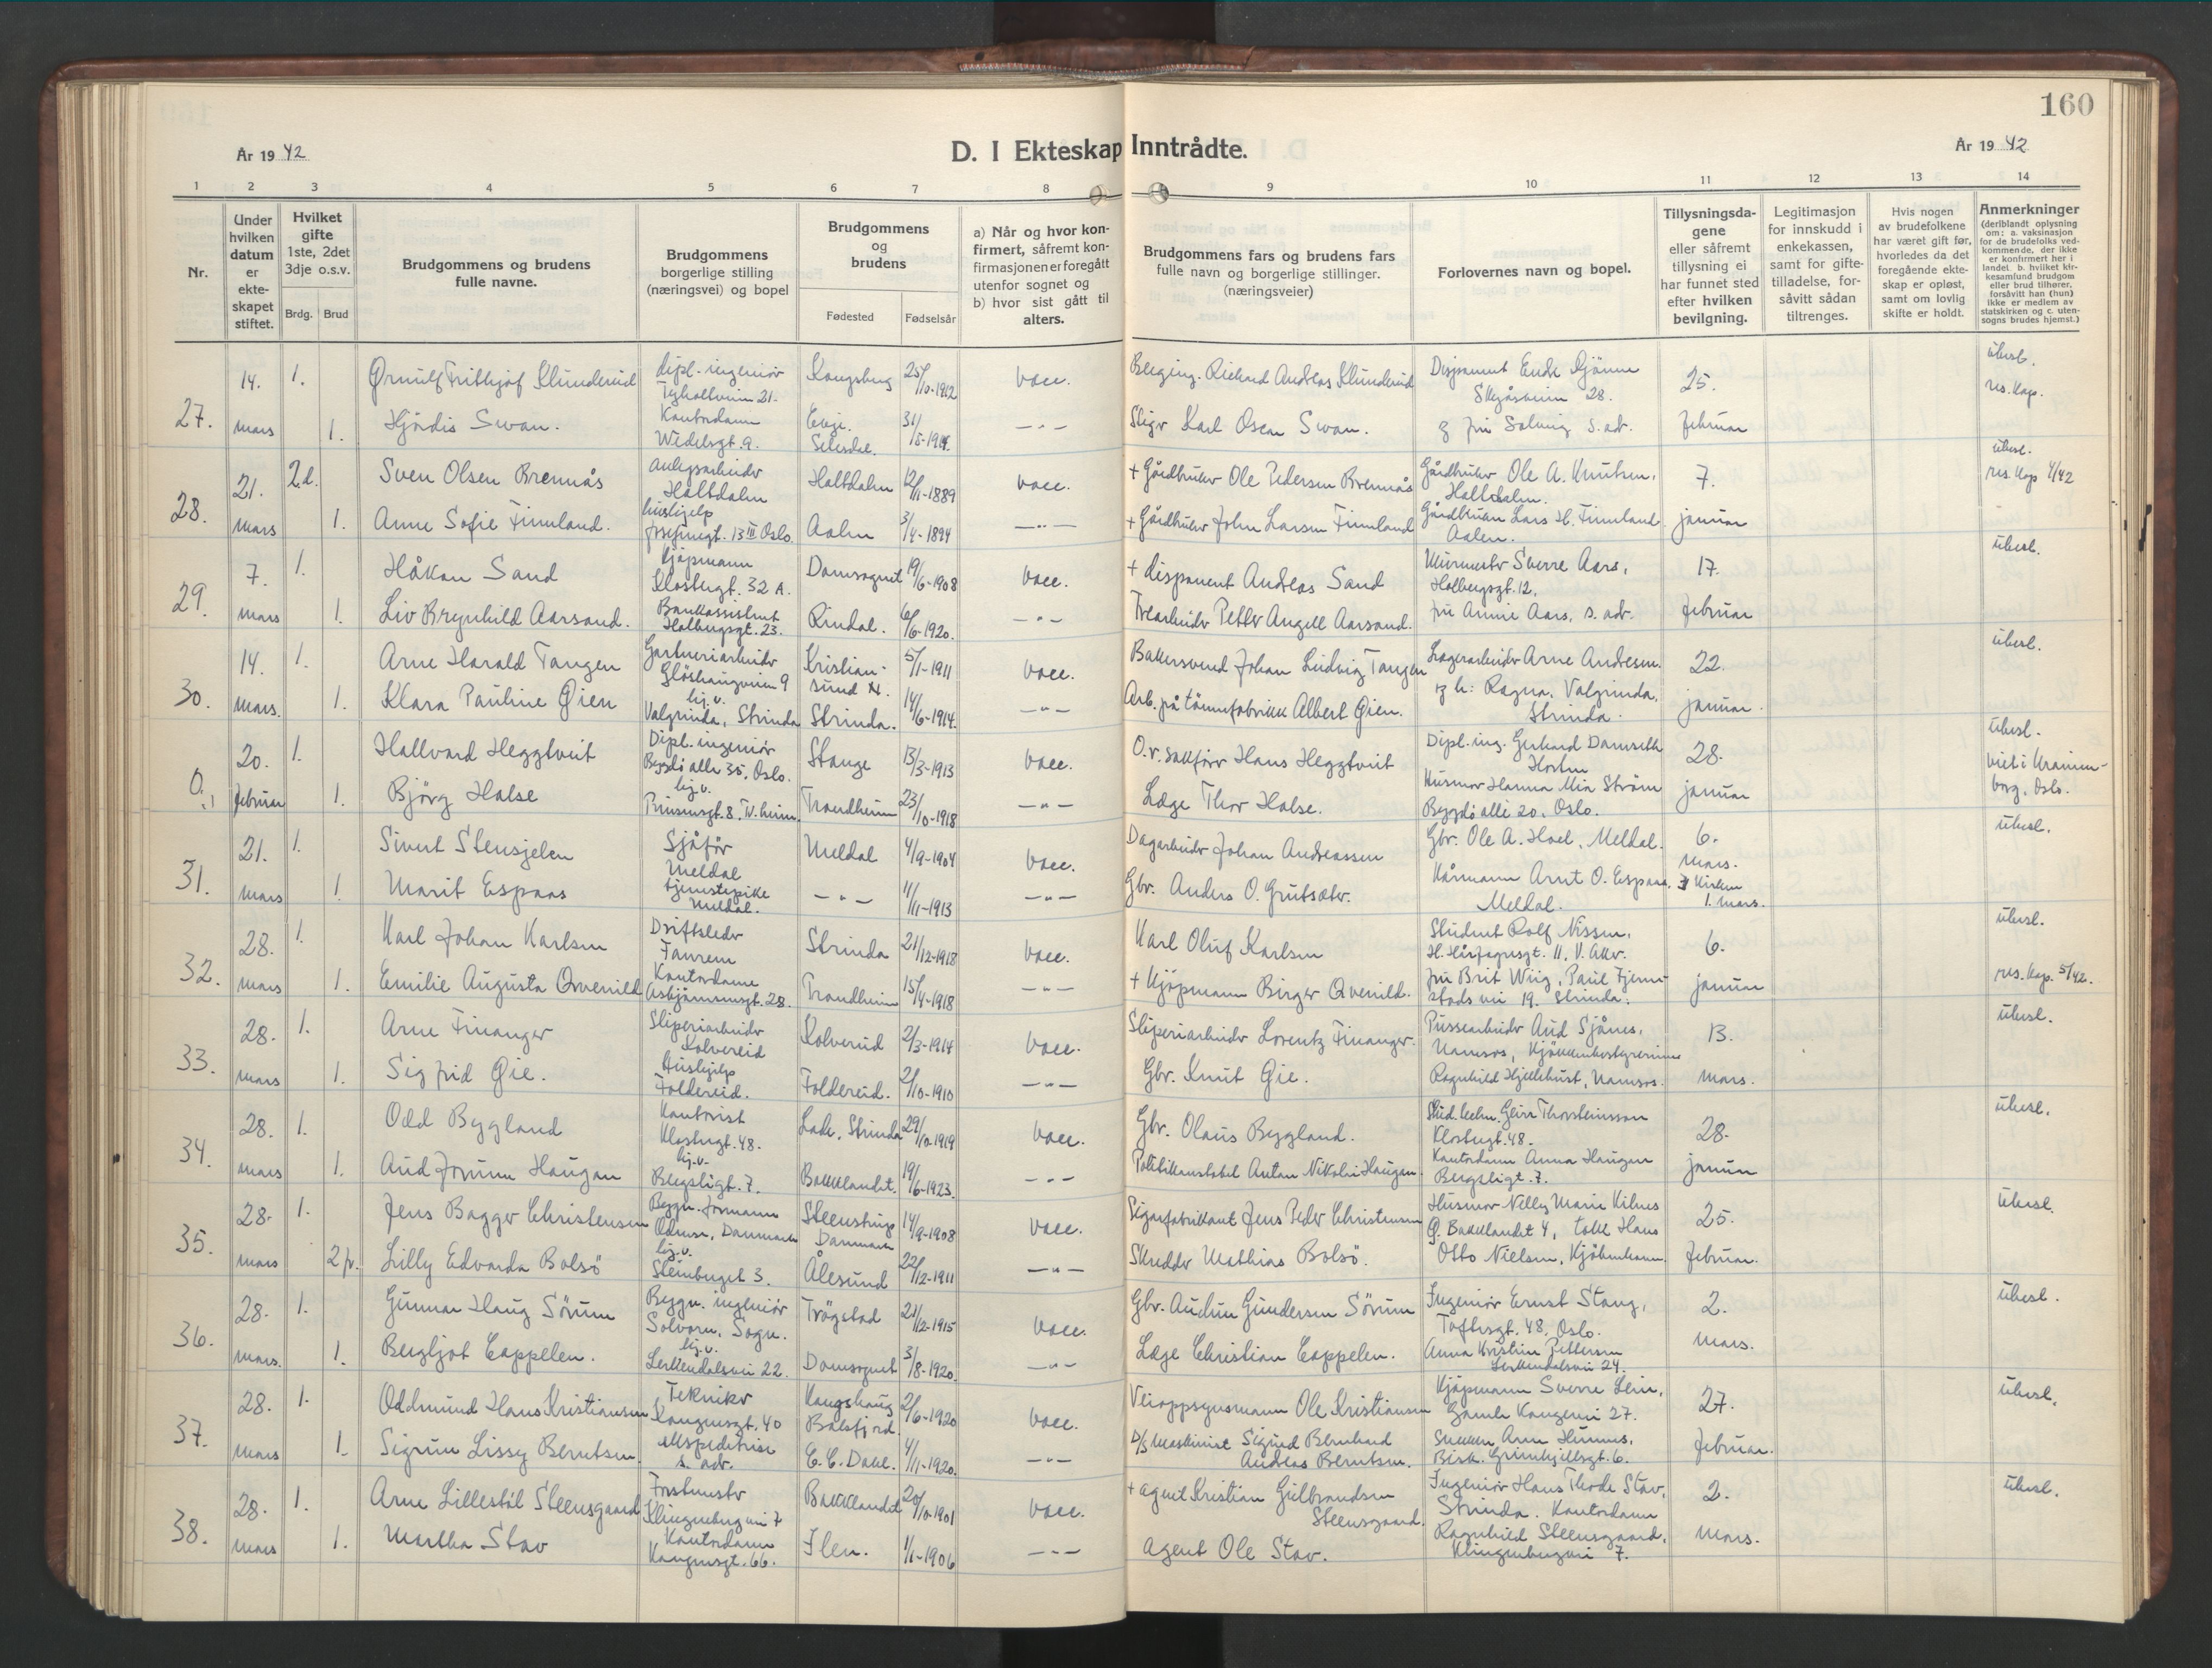 160
År 19 42
D. I Ekteskap Inntrådte.
År 19 42
1 2 3 4 5 6 7 8 9 10 11 12 13 14
Nr.
Under hvilken datum er ekte-skapet stiftet.
Hvilket gifte 1ste, 2det 3dje o.s.v.
Brdg. Brud
Brudgommens og brudens fulle navne.
Brudgommens borgerlige stilling (næringsvei) og bopel
Brudgommens og brudens
Fødested Fødselsår
a) Når og hvor kon-firmert, såfremt kon-firmasjonen er foregått utenfor sognet og b) hvor sist gått til alters.
Brudgommens fars og brudens fars fulle navn og borgerlige stillinger. (næringsveier)
Forlovernes navn og bopel.
Tillysningsda-gene eller såfremt tillysning ei har funnet sted efter hvilken bevilgning.
Legitimasjon for innskudd i enkekassen, samt for gifte-tilladelse, for-såvitt sådan tiltrenges.
Hvis nogen av brudefolkene har været gift før, hvorledes da det foregående ekte-skap er opløst, samt om lovlig skifte er holdt.
Anmerkninger (deriblandt oplysning om: a. vaksinasjon for de brudefolks ved-kommende, der ikke er konfirmert her i landet b. hvilket kir-kesamfund brudgom eller brud tilhører, forsåvitt han (hun) ikke er medlem av statskirken og c. uten-sogns brudes hjemst.)
27. 14. mars 1. Ørnulf Frithjof Klunderud dipl. ingeniør Tyholtveien 21. Kongsberg 25/10-1912 vacc. Berging. Richard Andreas Klunderud Disponent Endr. Skjåsveien 28. 25. ubesl. res. kap.
1. Hjördis Swan. Kontordame Wedelsgt. 9. Evje. Setesdal. 31/ -"- Karl Oscar Swan. fru Solveig s. adr. februar
28. 21. mars 2d. Sven Olsen Brennås anlegsarbeider Holtdalen Holtdalen 12/11-1889 vacc. + Gårdbruker Ole Pedersen Brennås Gårdbruker Ole A. Knutsen, Holtdalen. 7. ubesl. res. kap 4/42
1. Anne Sofie Finnland. hushjelp Josefinegt. 13 III Oslo. Aalen 3/4-1894 -"- + Gårdbruker John Larsen Finnland Gårdbruker Lars H. Finnland Aalen. januar
29. 7. mars 1. Håkon Sand kjøpmann Klostergt. 32 A. Domsognet 19/6-1908 vacc. + disponent Andreas Sand Murmester Sverre Aars, Holbergsgt. 12. 17. ubesl.
1. Liv Brynhild Aarsand. Bankassistent Holbergsgt. 23. Rindal. 6/6-1920. -"- Trearbeider Petter Angell Aarsand. fru Annie Aars, s. adr. februar
30. 14. mars. 1. Arne Harald Tangen Gartneriarbeider Gløshaugveien 9 Kristian-sund N. 5/1-1911 vacc. Bakersvend Johan Ludvig Tangen Lagerarbeider Arne Andresen. 22. ubesl.
1. Klara Pauline Øien hj. v. Valgrinda, Strinda Strinda. 14/6-1914. -"- Arb. på tønnefabrikk Albert Øien. og h: Ragna, Valgrinda, Strinda. januar.
0., 20. februar 1. Hallvard Heggtveit Dipl. ingeniør Bygdø alle 35, Oslo. Stange 13/3-1913 vacc. O.r. sakfører Hans Heggtveit Dipl. ing. Gerhard Horten 28. ubesl. viet i Uranien-borg, Oslo.
1. Bjørg Halse hj. v. Prinsensgt. 8. Tr.heim. Trondheim 23/10-1918 -"- Læge Thor Halse. Husmor Hanna Mia Strøm Bygdø alle 20. Oslo. januar
31. 21. mars 1. Sivert Stensjelen Sjåfør Meldal Meldal 4/9-1904 vacc. Dagarbeider Johan Andreassen Gbr. Ole A. Hoel, Meldal. 6. mars. ubesl.
1 Marit Espaas tjenestepike Meldal. -"- 1/11-1913 -"- Gbr. Anders O. Grutsæter. Kårmann Arnt O. Espaas, Meldal. 1. mars.
32. 28. mars 1. Karl Johan Karlsen Driftsleder Fanrem Strinda 21/12-1918 vacc. Karl Oluf Karlsen Student Rolf Nissen, H. Hårfagresgt. 11, V. Aker. 6. ubesl.
1. Emilie Augusta Qvenild Kontordame Asbjørnsensgt. 28. Trondheim 15/4-1918 -"- + Kjøpmann Birger Qvenild. fru Brit Wiig, Paul Fjermstads vei 19. Strinda. januar res. kap. 5/42.
33. 28. mars 1. Arne Finanger Sliperiarbeider Kolvereid Kolvereid 2/3-1914 vacc. Sliperiarbeider Lorentz Finanger. Pussearbeider Aud Sjånes, Namsos, Kjøkkenbestyrerinne 13. ubesl.
1. Sigfrid Øie. Hushjelp Foldereid. Foldereid. 2/10-1910 -"- Gbr. Knut Øie. Ragnhild Hjellehust, Namsos. mars.
34. 28. mars 1. Odd Bygland Kontorist Klostergt. 48. Lade, Strinda 29/10-1919 vacc. Gbr. Olaus Bygland. Stud. techn. Geirr Thorsteinsson Klostergt. 48. 28. ubesl.
1. Aud Jorunn Haugan hj. v. Bergsligt. 7. Bakklandet. 19/6-1923. -"- Politikonstabel Anton Nikolai Haugan. Kontordame Anna Haugen Bergsligt. 7. januar
35. 28. mars 1. Jens Bagger Christensen Bygn. formann Odense, Danmark Steenstrup Danmark 14/9-1908 vacc. Sigarfabrikant Jens Peder Christensen Husmor Nelly Marie Kilnes Ø. Bakklandet 4, tolk Hans 25. ubesl.
2 fr. Lilly Edvarda Bolsö hj. v. Steinberget 3. Ålesund 22/12-1911 -"- Skredder Mathias Bolsö. Otto Nielsen, Kjøbenhavn. februar.
36. 28. mars. 1. Gunnar Haug Sörum Bygn. ingeniør Solvorn, Sogn. Trøgstad 21/12-1915 vacc. Gbr. Audun Gundersen Sörum Ingeniør Ernst Stang, Toftesgt. 48, Oslo. 2. ubesl.
1. Bergljot Cappelen. hj. v. Lerkendalsvei 22. Domsognet 3/8-1920. -"- Læge Christian Cappelen. Anna Kristin Pettersen Lerkendalsvei 24. mars.
37. 28. mars 1. Oddmund Hans Kristiansen Tekniker Kongensgt. 40 Kongshaug Balsfjord. 2/6-1920 vacc. Veioppsynsmann Ole Kristiansen Kjøpmann Sverre Lein, Gamle Kongevei 27. 27. ubesl.
1. Sigrun Lissy Berntsen ekspeditrise s. adr. E. C. Dahl. 4/11-1920. -"- D/S Maskinist Sigurd Bernhard Andreas Berntsen. Snekker Arne Hunnes, Bisk. Grimkjellsgt. 6. februar.
38. 28. mars 1. Arne Lillestøl Steensgaard Forstmester Klingenbergvei 7 Bakklandet 20/10-1901 vacc. + agent Kristian Gulbrandsen Steensgaard. Ingeniør Hans Thode Stav, Strinda. Kontordame 2. ubesl.
1. Martha Stav Kontordame Kongensgt. 66. Ilen. 1/1-1906 -"- agent Ole Stav. Ragnhild Steensgaard, Klingenbergvei 7. mars.